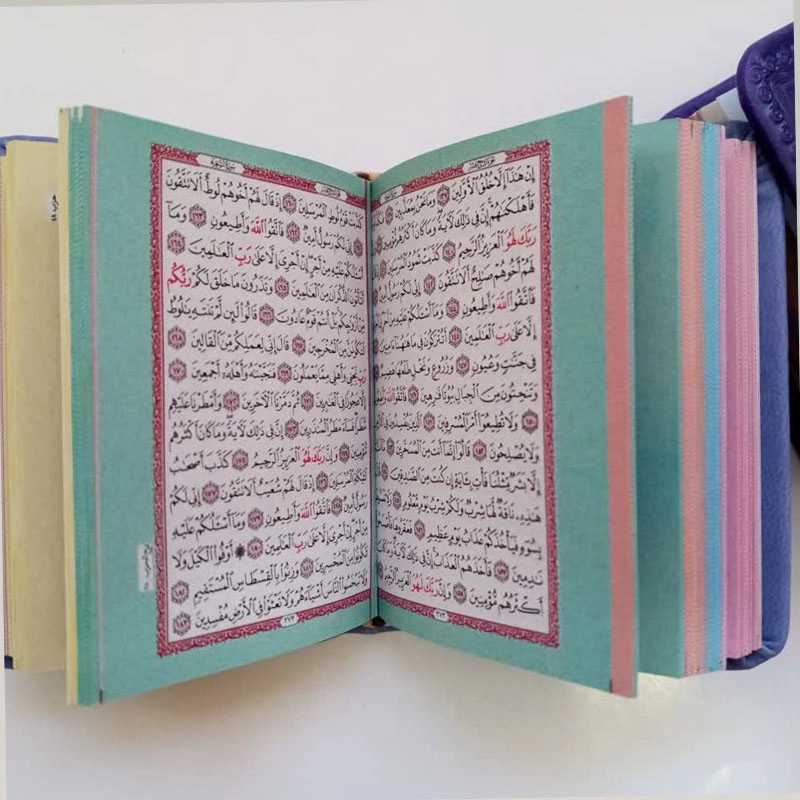 إِنْ هَٰذَا إِلَّا خُلُقُ الْأَوَّلِينَ ١٣٧ وَمَا نَحْنُ بِمُعَذَّبِينَ
فَأَهْلَكْنَاهُمْ إِنَّ فِي ذَٰلِكَ لَآيَةً وَمَا كَانَ أَكْثَرُهُم مُّؤْمِنِينَ
رَبَّكَ لَهُوَ الْعَزِيزُ الرَّحِيمُ ١٤٠ كَذَّبَتْ ثَمُودُ الْمُرْسَلِينَ
لَهُمْ أَخُوهُمْ صَالِحٌ أَلَا تَتَّقُونَ ١٤٢ إِنِّي لَكُمْ رَسُولٌ أَمِينٌ
فَاتَّقُوا اللَّهَ وَأَطِيعُونِ ١٤٤ وَمَا أَسْأَلُكُمْ عَلَيْهِ مِنْ أَجْرٍ إِنْ أَجْرِيَ
إِلَّا عَلَىٰ رَبِّ الْعَالَمِينَ ١٤٥ أَتُتْرَكُونَ فِي مَا هَاهُنَا آمِنِينَ
فِي جَنَّاتٍ وَعُيُونٍ ١٤٧ وَزُرُوعٍ وَنَخْلٍ طَلْعُهَا هَضِيمٌ
وَتَنْحِتُونَ مِنَ الْجِبَالِ بُيُوتًا فَارِهِينَ ١٤٩ فَاتَّقُوا اللَّهَ وَأَطِيعُونِ
١٥٠ وَلَا تُطِيعُوا أَمْرَ الْمُسْرِفِينَ ١٥١ الَّذِينَ يُفْسِدُونَ فِي الْأَرْضِ
وَلَا يُصْلِحُونَ ١٥٢ قَالُوا إِنَّمَا أَنتَ مِنَ الْمُسَحَّرِينَ
إِلَّا بَشَرٌ مِّثْلُنَا فَأْتِ بِآيَةٍ إِن كُنتَ مِنَ الصَّادِقِينَ
هَٰذِهِ نَاقَةٌ لَّهَا شِرْبٌ وَلَكُمْ شِرْبُ يَوْمٍ مَّعْلُومٍ
بِسُوءٍ فَيَأْخُذَكُمْ عَذَابُ يَوْمٍ عَظِيمٍ ١٥٦ فَعَقَرُوهَا فَأَصْبَحُوا
نَادِمِينَ ١٥٧ فَأَخَذَهُمُ الْعَذَابُ إِنَّ فِي ذَٰلِكَ لَآيَةً وَمَا كَانَ
أَكْثَرُهُم مُّؤْمِنِينَ ١٥٨ وَإِنَّ رَبَّكَ لَهُوَ الْعَزِيزُ الرَّحِيمُ
٣٧٣
كَذَّبَتْ قَوْمُ لُوطٍ الْمُرْسَلِينَ ١٦٠ إِذْ قَالَ لَهُمْ أَخُوهُمْ لُوطٌ أَلَا تَتَّقُونَ
١٦١ إِنِّي لَكُمْ رَسُولٌ أَمِينٌ ١٦٢ فَاتَّقُوا اللَّهَ وَأَطِيعُونِ ١٦٣ وَمَا
أَسْأَلُكُمْ عَلَيْهِ مِنْ أَجْرٍ إِنْ أَجْرِيَ إِلَّا عَلَىٰ رَبِّ الْعَالَمِينَ ١٦٤
أَتَأْتُونَ الذُّكْرَانَ مِنَ الْعَالَمِينَ ١٦٥ وَتَذَرُونَ مَا خَلَقَ لَكُمْ رَبُّكُم
مِّنْ أَزْوَاجِكُم بَلْ أَنتُمْ قَوْمٌ عَادُونَ ١٦٦ قَالُوا لَئِن لَّمْ تَنتَهِ يَا لُوطُ
لَتَكُونَنَّ مِنَ الْمُخْرَجِينَ ١٦٧ قَالَ إِنِّي لِعَمَلِكُم مِّنَ الْقَالِينَ ١٦٨
رَبِّ نَجِّنِي وَأَهْلِي مِمَّا يَعْمَلُونَ ١٦٩ فَنَجَّيْنَاهُ وَأَهْلَهُ أَجْمَعِينَ ١٧٠
إِلَّا عَجُوزًا فِي الْغَابِرِينَ ١٧١ ثُمَّ دَمَّرْنَا الْآخَرِينَ ١٧٢ وَأَمْطَرْنَا عَلَيْهِم
مَّطَرًا فَسَاءَ مَطَرُ الْمُنذَرِينَ ١٧٣ إِنَّ فِي ذَٰلِكَ لَآيَةً وَمَا كَانَ أَكْثَرُهُم
مُّؤْمِنِينَ ١٧٤ وَإِنَّ رَبَّكَ لَهُوَ الْعَزِيزُ الرَّحِيمُ ١٧٥ كَذَّبَ أَصْحَابُ
لْأَيْكَةِ الْمُرْسَلِينَ ١٧٦ إِذْ قَالَ لَهُمْ شُعَيْبٌ أَلَا تَتَّقُونَ ١٧٧ إِنِّي لَكُمْ
رَسُولٌ أَمِينٌ ١٧٨ فَاتَّقُوا اللَّهَ وَأَطِيعُونِ ١٧٩ وَمَا أَسْأَلُكُمْ عَلَيْهِ
مِنْ أَجْرٍ إِنْ أَجْرِيَ إِلَّا عَلَىٰ رَبِّ الْعَالَمِينَ ١٨٠ ۞ أَوْفُوا الْكَيْلَ وَلَا
تَكُونُوا مِنَ الْمُخْسِرِينَ ١٨١ وَزِنُوا بِالْقِسْطَاسِ الْمُسْتَقِيمِ ١٨٢
وَلَا تَبْخَسُوا النَّاسَ أَشْيَاءَهُمْ وَلَا تَعْثَوْا فِي الْأَرْضِ مُفْسِدِينَ ١٨٣
٣٧٤